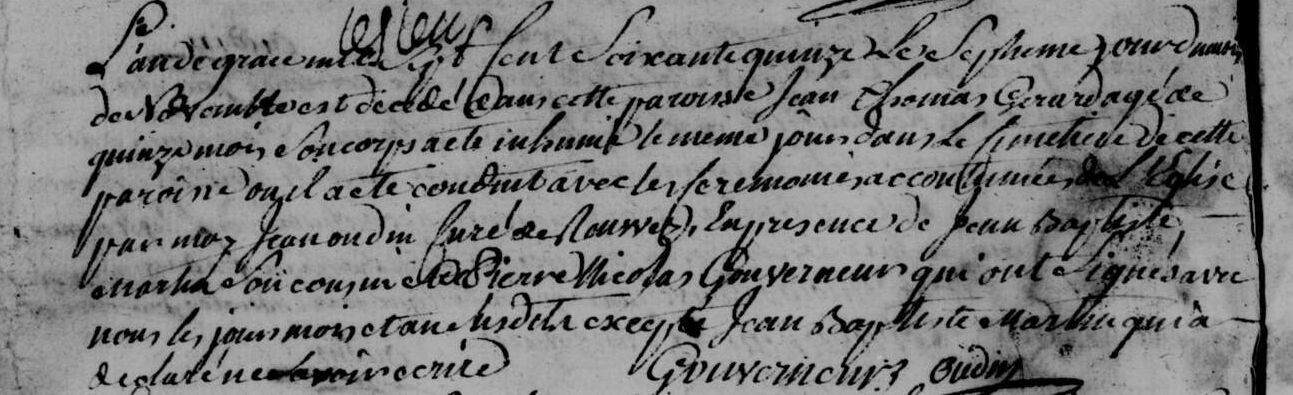 L'an de grace mille Sept Cent Soixante quinze Le Septieme jour du mois
de Novembre est décedé dans cette paroisse Jean Thomas Gerard agé de
quinze mois Son corps a eté inhumé le meme jour dans Le Cimetiere de cette
paroisse ou il a eté conduit avec les ceremonies accoutumées de L'Eglise
par moy Jean oudin Curé de En presence de Jean Baptiste
Martin Son cousin et de Pierre Nicolas Gouverneur qui ont Signés avec
nous les jours mois et an Susdits excepté Jean Baptiste Martin qui à
declaré ne Savoir ecrire Gouverneur oudin